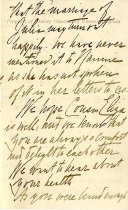 that the marriage of
may turn out
happily. We have never
it to
as she has not spoken
of it in her letters to us
We hope Cousin
is well, and we know that
You are always a comfort
and delight to each other
We want to hear about
your health
As you were